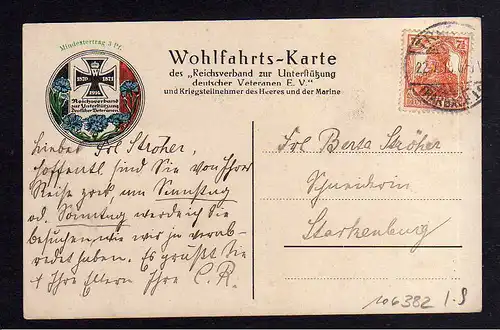 Mindestertrag 3 Pf.
1870 1871
1914
Reichsverband
zur Unterstützung
Deutscher Veteranen
Wohlfahrts-Karte
des „Reichsverband zur Unterstützung
deutscher Veteranen E. V.“
und Kriegsteilnehmer des Heeres und der Marine
7½
22.
Liebes Frl Ströher,
hoffentl sind Sie von Ihrer
Reise zrck, am Sonnstag
od. Sonntag werde ich Sie
besuchen, wie wir ja verab-
redet haben. Es grüßt Sie
+ Ihre Eltern Ihre C. R.
Frl Berta Ströher
Schneiderin
Starkenburg
106382 1.8